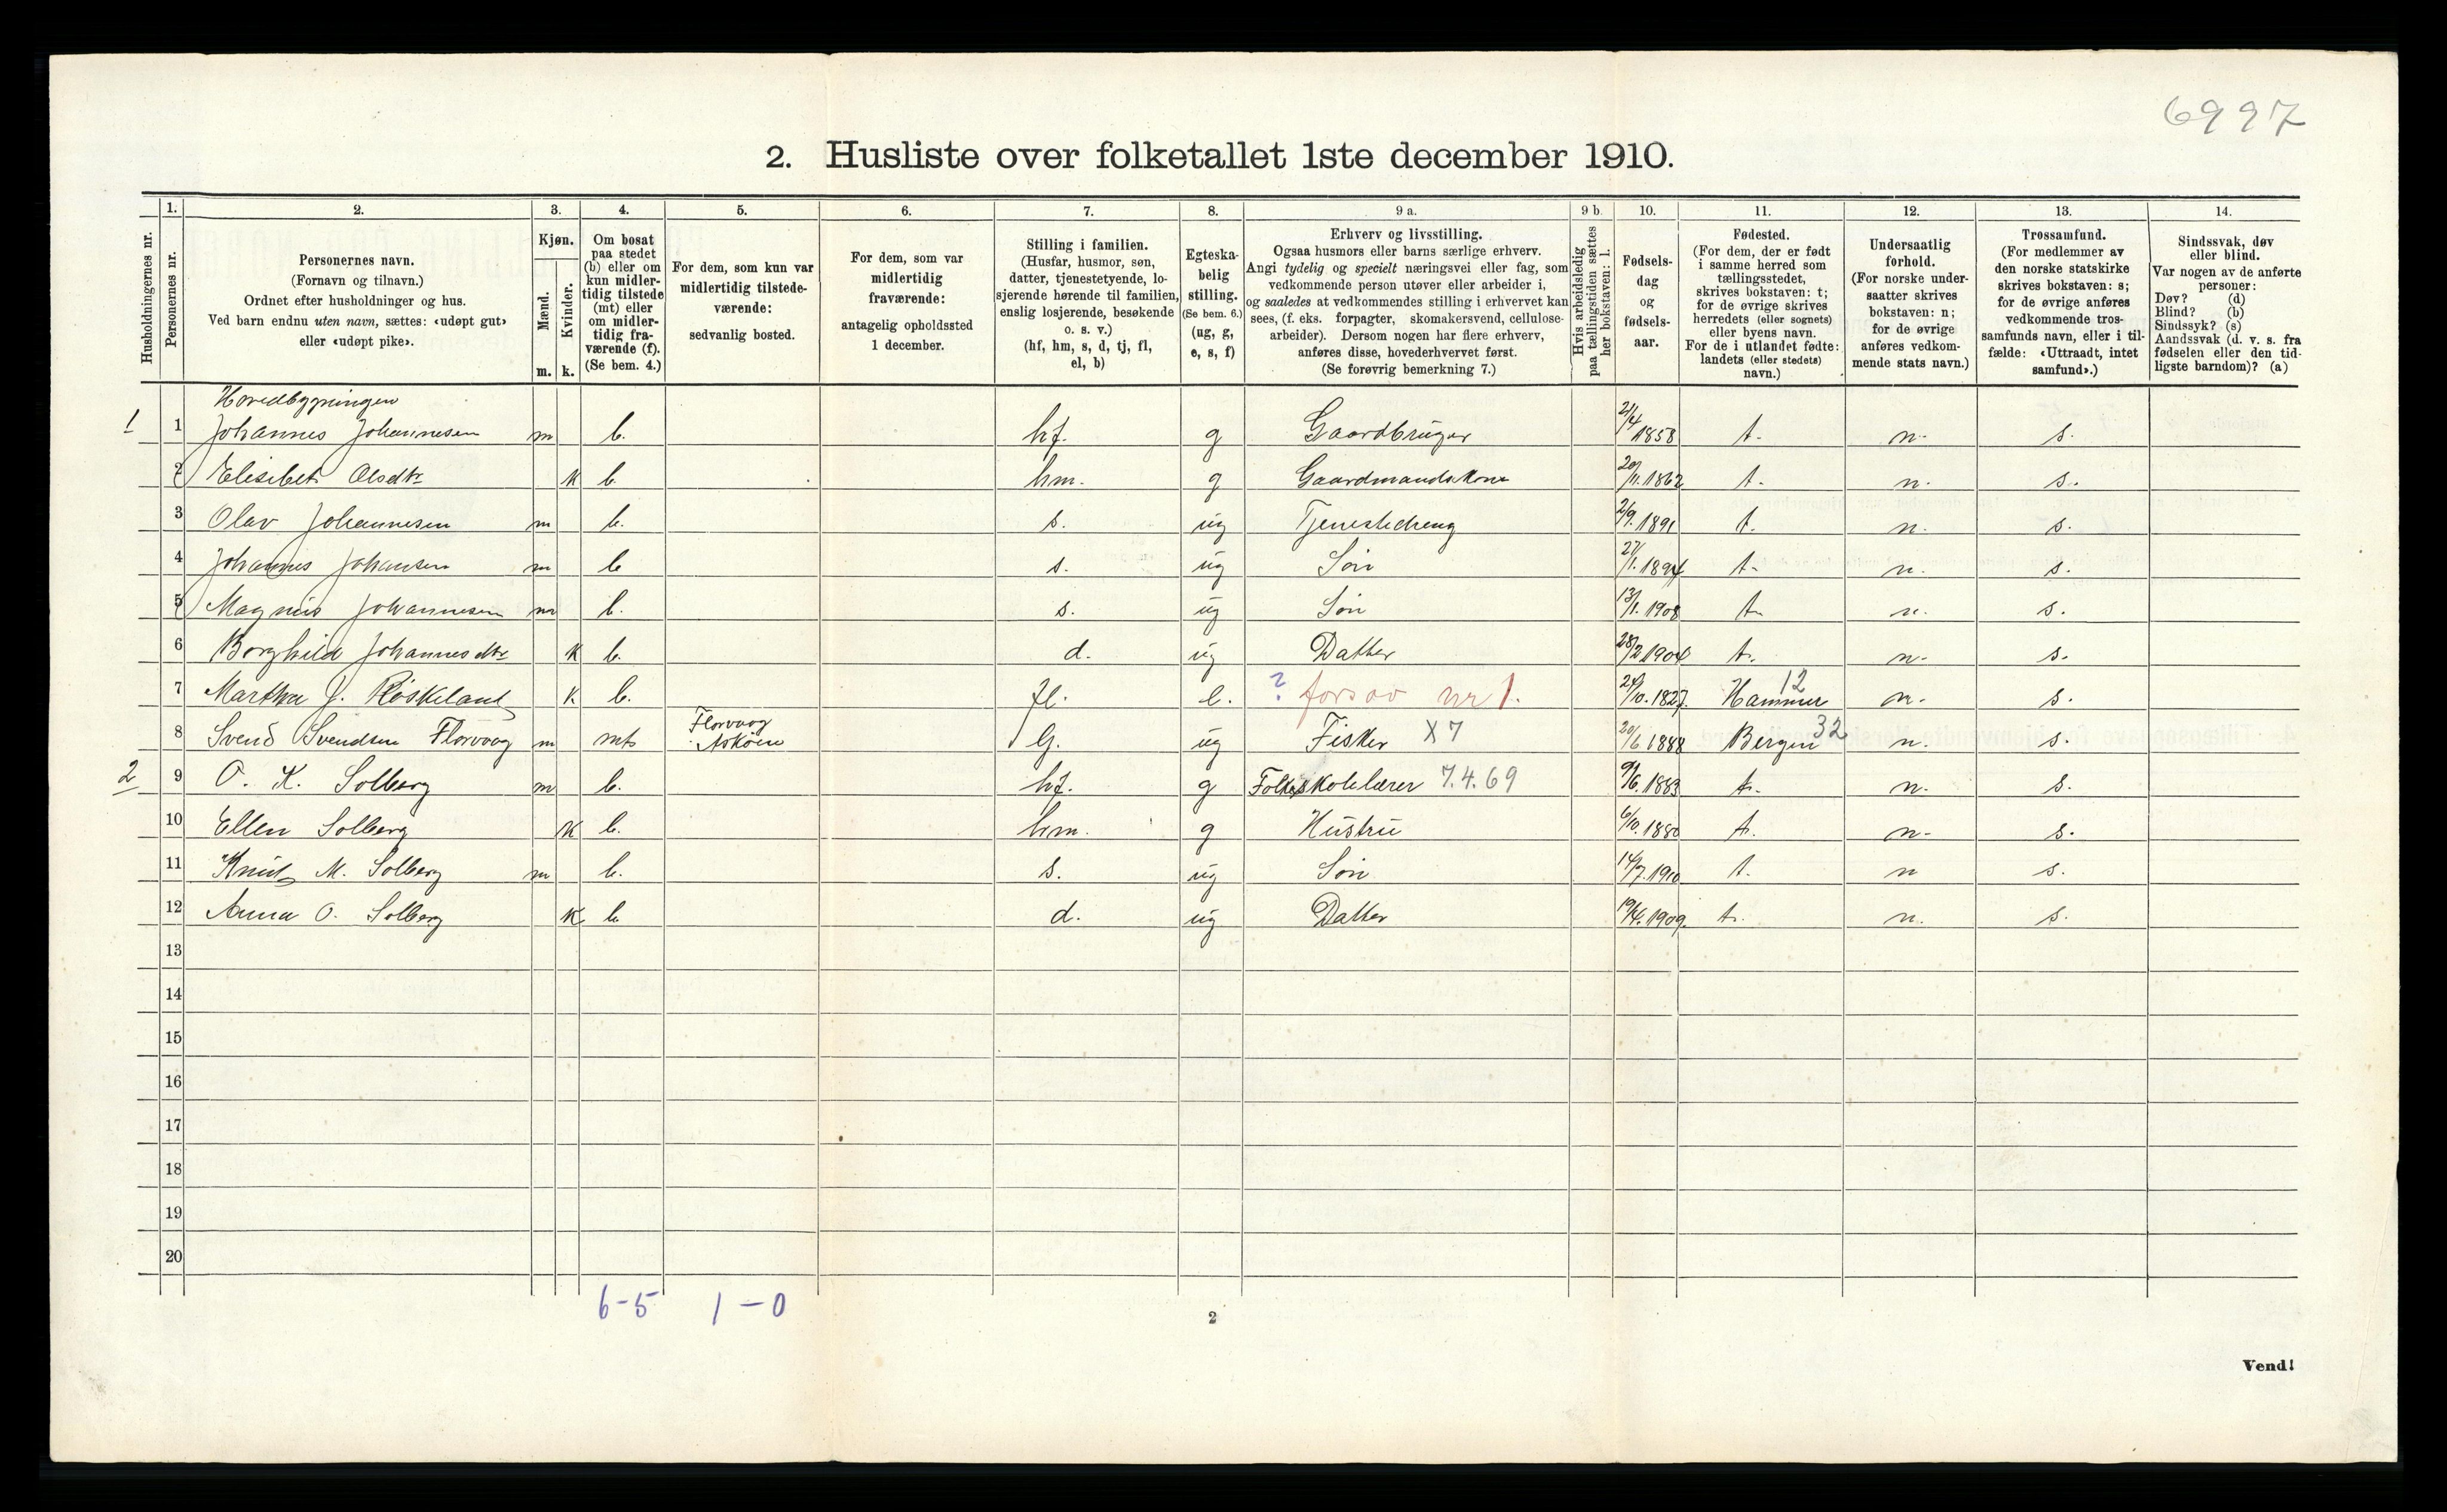 6997
2. Husliste over folketallet 1ste december 1910.
Husholdningernes nr.
1. Personernes nr.
2. Personernes navn. (Fornavn og tilnavn.) Ordnet efter husholdninger og hus. Ved barn endnu uten navn, sættes: «udøpt gut» eller «udøpt pike».
3. Kjøn. Mænd. m. Kvinder. k.
4. Om bosat paa stedet (b) eller om kun midlertidig tilstede (mt) eller om midlertidig fraværende (f). (Se bem. 4.)
5. For dem, som kun var midlertidig tilstedeværende: sedvanlig bosted.
6. For dem, som var midlertidig fraværende: antagelig opholdssted 1 december.
7. Stilling i familien. (Husfar, husmor, søn, datter, tjenestetyende, losjerende hørende til familien, enslig losjerende, besøkende o. s. v.) (hf, hm, s, d, tj, fl, el, b)
8. Egteskabelig stilling. (Se bem. 6.) (ug, g, e, s, f)
9 a. Erhverv og livsstilling. Ogsaa husmors eller barns særlige erhverv. Angi tydelig og specielt næringsvei eller fag, som vedkommende person utøver eller arbeider i, og saaledes at vedkommendes stilling i erhvervet kan sees, (f. eks. forpagter, skomakersvend, cellulosearbeider). Dersom nogen har flere erhverv, anføres disse, hovederhvervet først. (Se forøvrig bemerkning 7.)
9 b. Hvis arbeidsledig paa tællingstiden sættes her bokstaven: l.
10. Fødselsdag og fødselsaar.
11. Fødested. (For dem, der er født i samme herred som tællingsstedet, skrives bokstaven: t; for de øvrige skrives herredets (eller sognets) eller byens navn. For de i utlandet fødte: landets (eller stedets) navn.)
12. Undersaatlig forhold. (For norske undersaatter skrives bokstaven: n; for de øvrige anføres vedkommende stats navn.)
13. Trossamfund. (For medlemmer av den norske statskirke skrives bokstaven: s; for de øvrige anføres vedkommende trossamfunds navn, eller i tilfælde: «Uttraadt, intet samfund».)
14. Sindssvak, døv eller blind. Var nogen av de anførte personer: Døv? (d) Blind? (b) Sindssyk? (s) Aandssvak (d. v. s. fra fødselen eller den tidligste barndom)? (a)
Hovedbygningen
1 1 Johannes Johannesen m b. hf. g Gaardbruger 2/4 1858 t. n. s.
2 Elisibet Olsdtr k b. hm. g Gaardmandskone 20/11 1862 t. n. s.
3 Olav Johannesen m b. s. ug Tjenestedreng 2/9 1891 t. n. s.
4 Johannes Johansen m b s. ug Søn 27/1 1894 t. n. s.
5 Magnus Johannesen m b. s. ug Søn 13/1 1908 t. n. s.
6 Borghild Johannesdtr k b. d. ug Datter 28/2 1904 t. n. s.
7 Martha J. Røskeland k b. fl. e. ? forsør nr 1. 24/10 1827. Hammer 12 n. s.
8 Svend Svendsen Florvaag m mt Florvaag Askøen G. ug Fisker X7 20/6 1888 Bergen 32 n. s.
2 9 O. K. Solberg m b. hf. g Folkeskolelærer 7.4.69 9/6 1883 t. n. s.
10 Ellen Solberg k b. hm. g Hustru 6/10 1880 t. n. s.
11 Knut M. Solberg m b. s. ug Søn 14/7 1910 t. n s.
12 Anna O. Solberg k b. d. ug Datter 19/4 1909. t. n. s.
13
14
15
16
17
18
19
20
6-5 1-0
2
Vend!